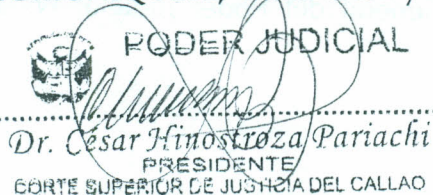 PODER JUDICIAL
Dr. César Hinostroza Pariachi
PRESIDENTE
CORTE SUPERIOR DE JUSTICIA DEL CALLAO